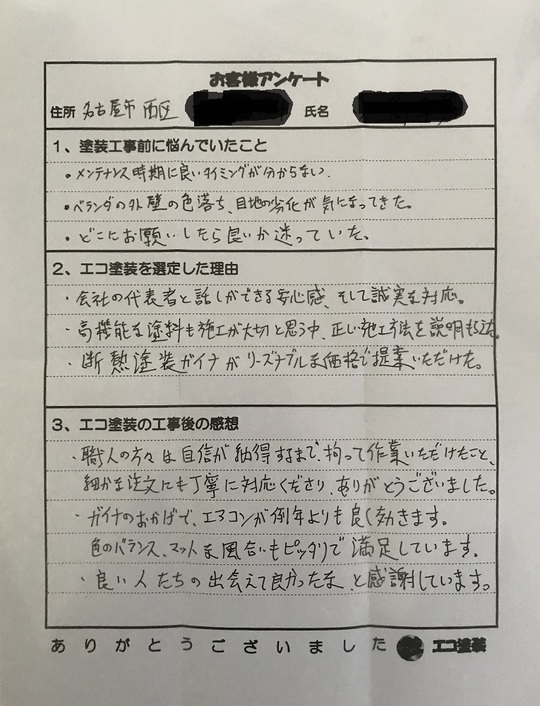 お客様アンケート
住所 名古屋市 西区 氏名
1、塗装工事前に悩んでいたこと
・メンテナンス時期に良いタイミングが分からない.
・ベランダの外壁の色落ち、目地の劣化が気になってきた。
・どこにお願いしたら良いか迷っていた。
2、エコ塗装を選定した理由
・会社の代表者と話しができる安心感、そして誠実な対応。
・高機能な塗料も施工が大切と思う中、正しい施工方法を説明も
・断熱塗装ガイナがリーズナブルな価格で提案いただけた。
3、エコ塗装の工事後の感想
・職人の方々は自信が納得するまで、拘って作業いただけたこと、
細かな注文にも丁寧に対応くださり、ありがとうございました。
・ガイナのおかげで、エアコンが例年よりも良く効きます。
色のバランス、マットな風合いもピッタリで満足しています。
・良い人たちの出会えて良かったな、と感謝しています。
ありがとうございました エコ塗装